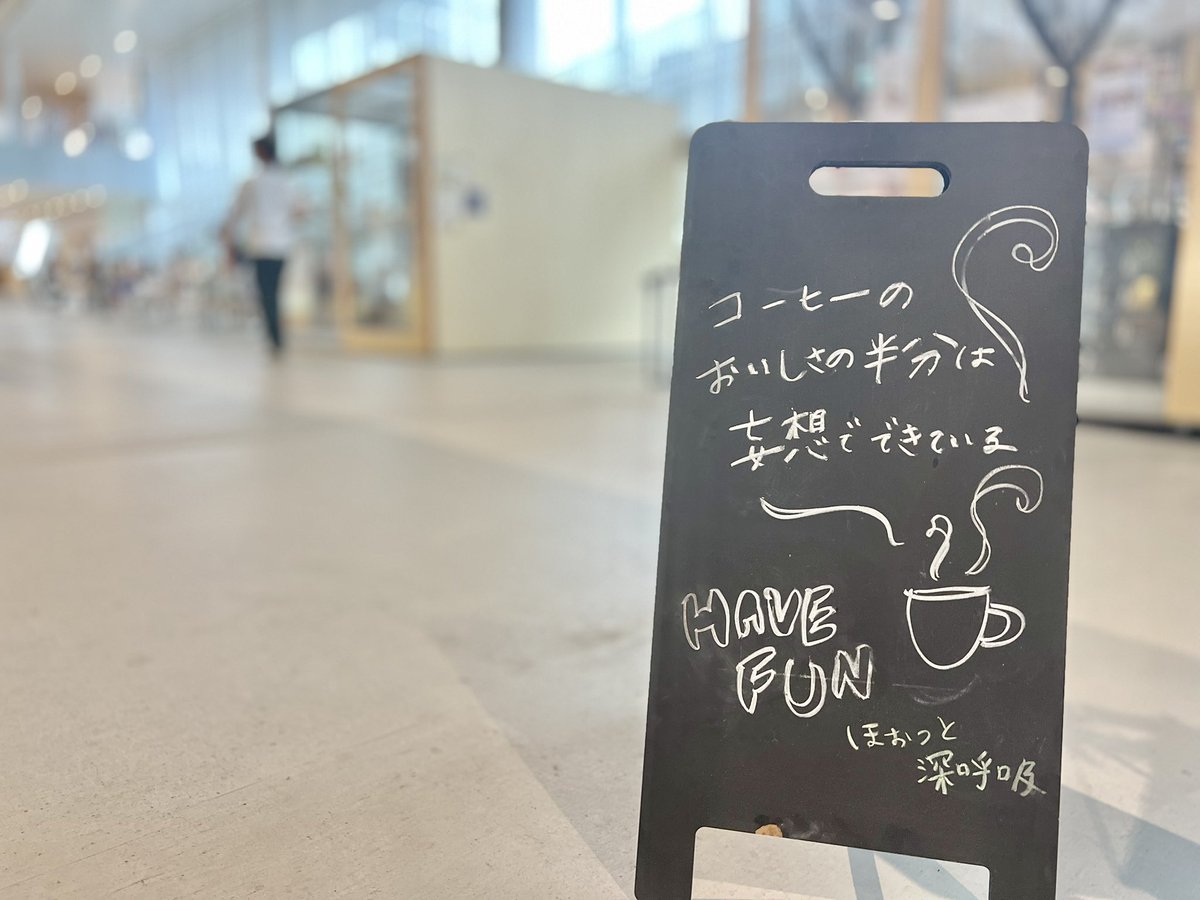 コーヒーの
おいしさの半分は
妄想でできている
HAVE
FUN
ほおっと
深呼吸